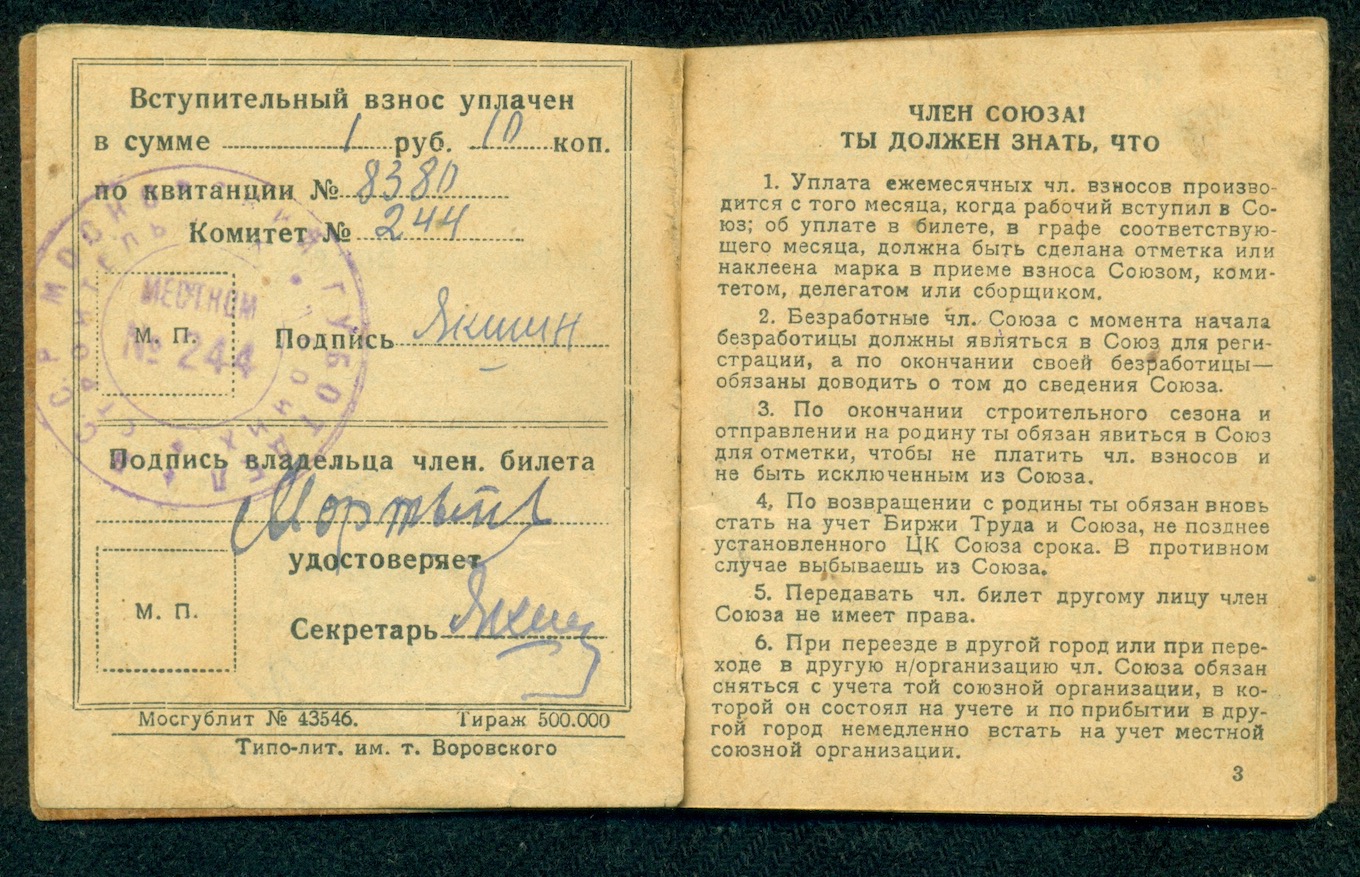 Вступительный взнос уплачен
в сумме 1 руб. 10 коп.
по квитанции № 8380
Комитет № 244
М. П.
Подпись Якшин
МЕСТКОМ
№ 244
Подпись владельца член. билета
удостоверяет
М. П.
Секретарь
Мосгублит № 43546. Тираж 500.000
Типо-лит. им. т. Воровского
ЧЛЕН СОЮЗА!
ТЫ ДОЛЖЕН ЗНАТЬ, ЧТО
1. Уплата ежемесячных чл. взносов произво-
дится с того месяца, когда рабочий вступил в Со-
юз; об уплате в билете, в графе соответствую-
щего месяца, должна быть сделана отметка или
наклеена марка в приеме взноса Союзом, коми-
тетом, делегатом или сборщиком.
2. Безработные чл. Союза с момента начала
безработицы должны являться в Союз для реги-
страции, а по окончании своей безработицы—
обязаны доводить о том до сведения Союза.
3. По окончании строительного сезона и
отправлении на родину ты обязан явиться в Союз
для отметки, чтобы не платить чл. взносов и
не быть исключенным из Союза.
4. По возвращении с родины ты обязан вновь
стать на учет Биржи Труда и Союза, не позднее
установленного ЦК Союза срока. В противном
случае выбываешь из Союза.
5. Передавать чл. билет другому лицу член
Союза не имеет права.
6. При переезде в другой город или при пере-
ходе в другую н/организацию чл. Союза обязан
сняться с учета той союзной организации, в ко-
торой он состоял на учете и по прибытии в дру-
гой город немедленно встать на учет местной
союзной организации.
3